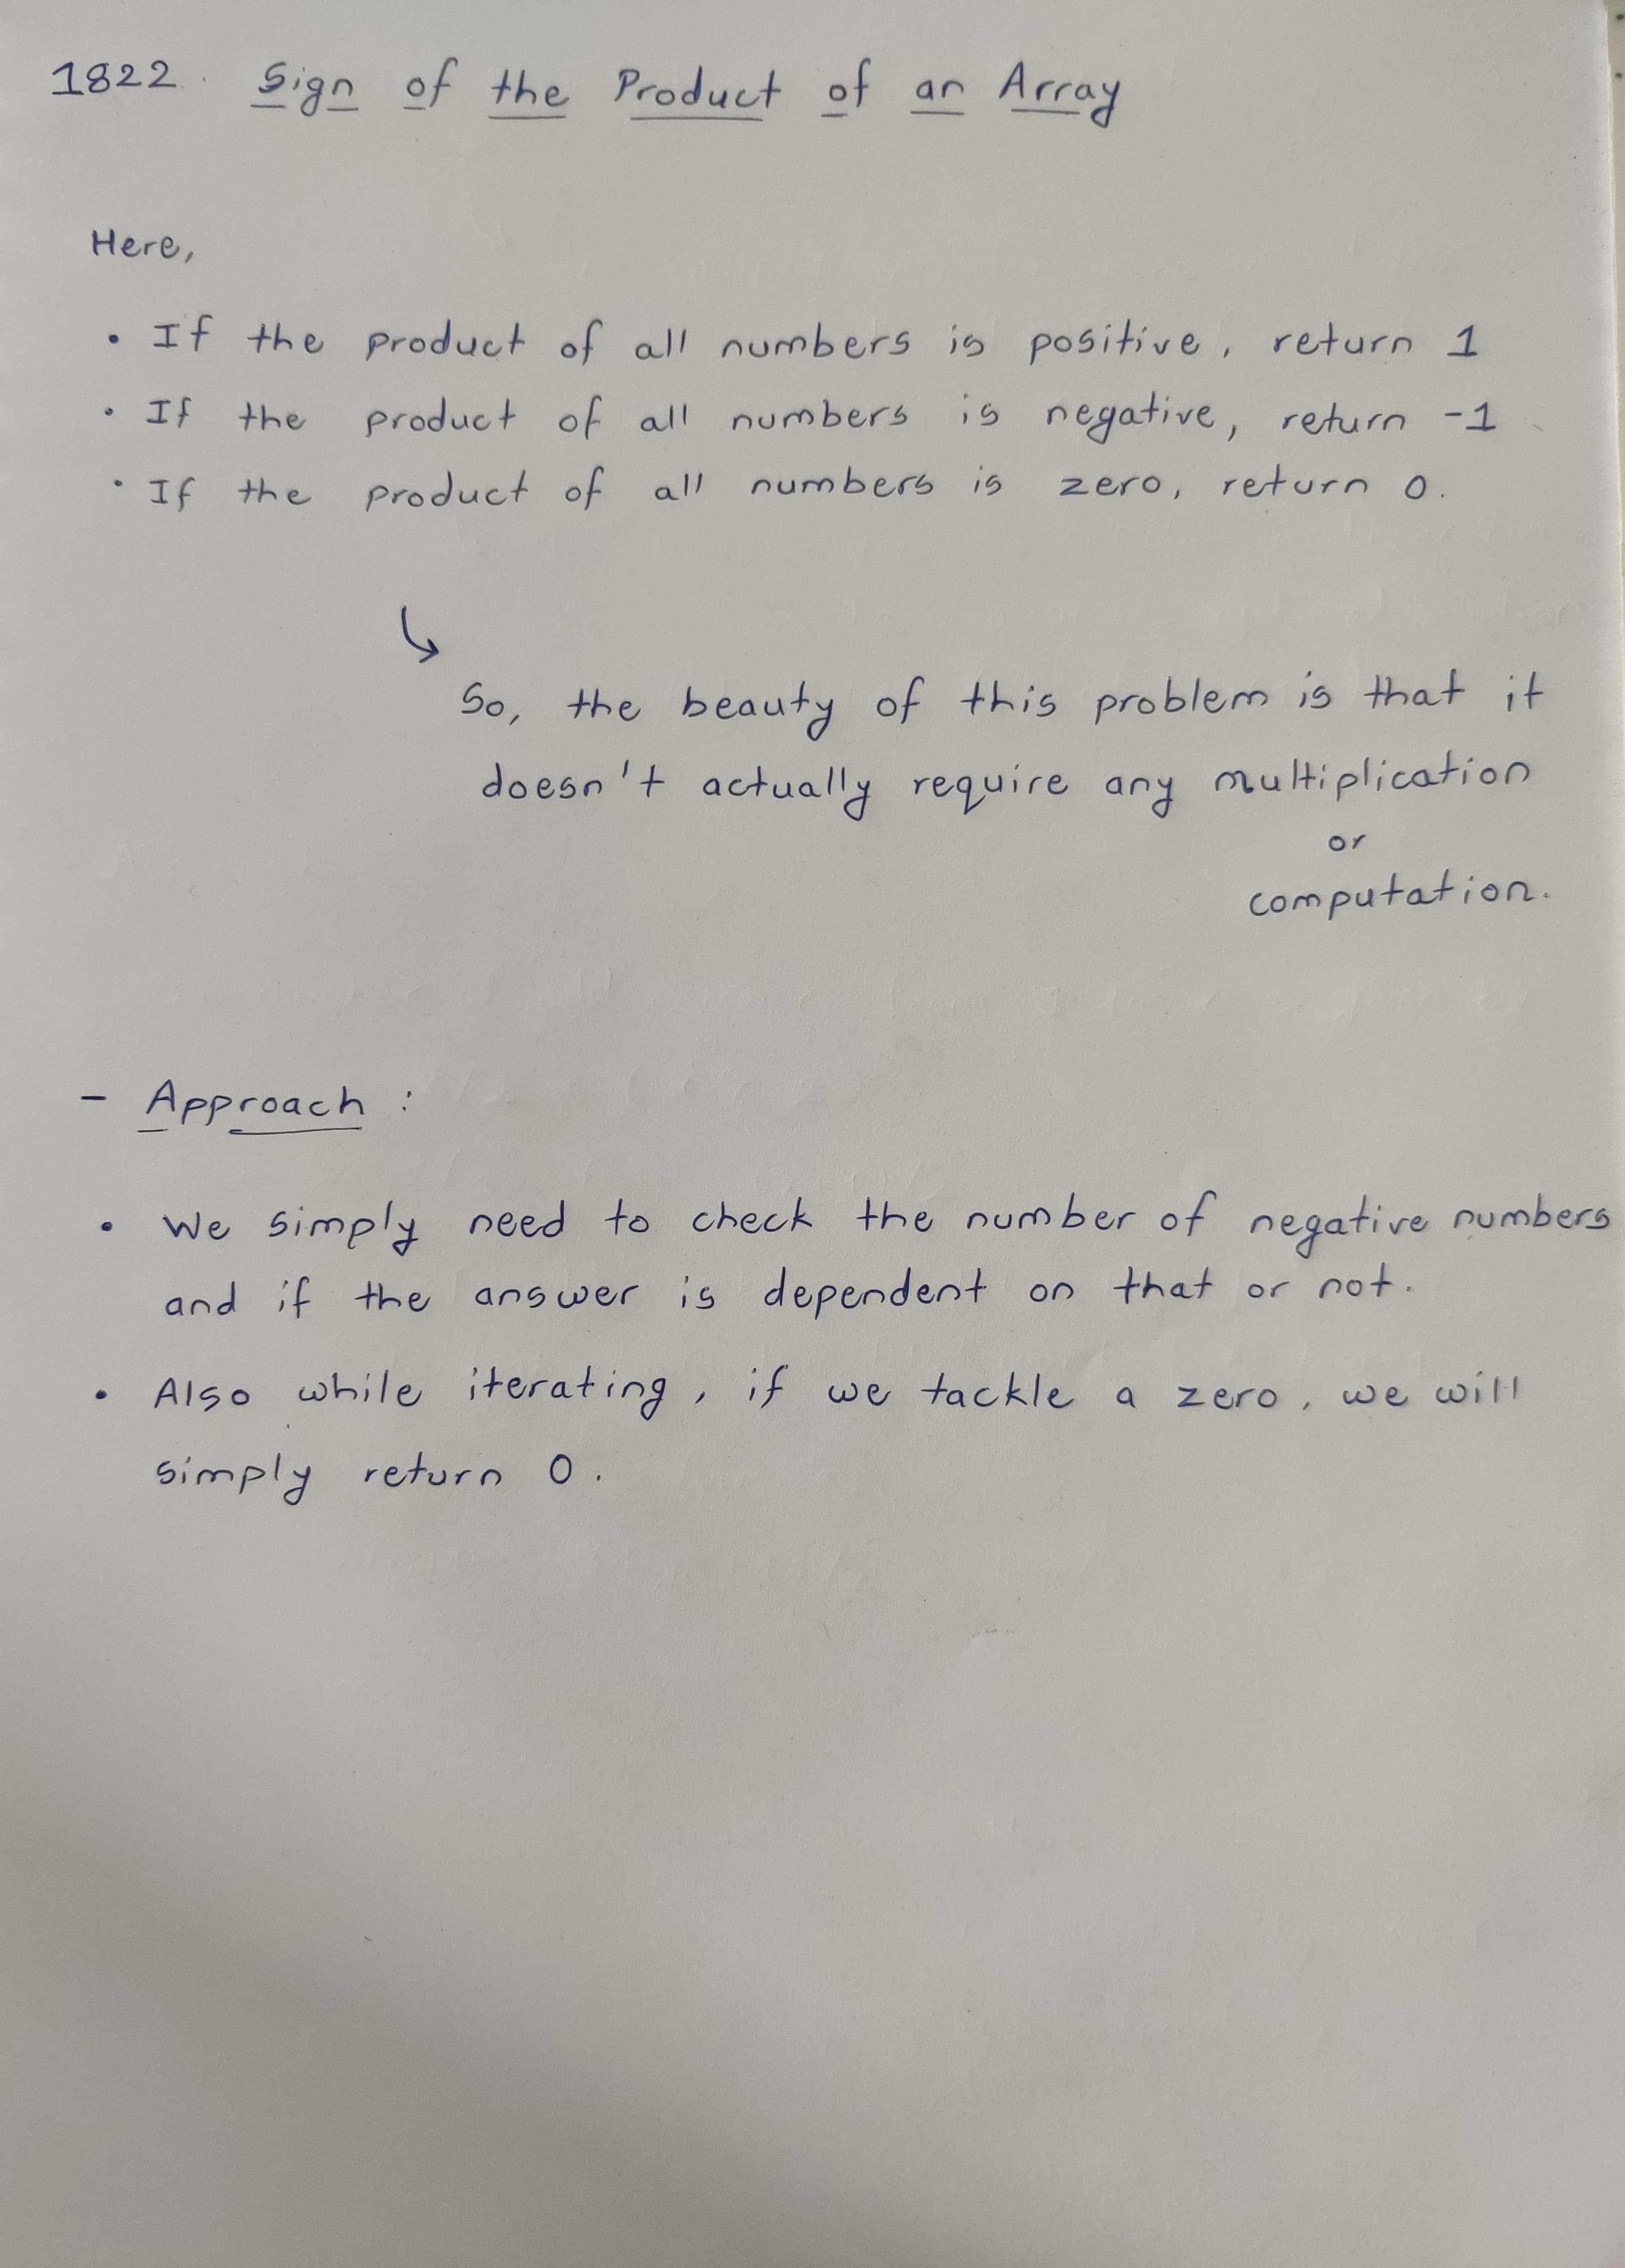 1822. Sign of the Product of an Array
Here,
• If the product of all numbers is positive, return 1
• If the product of all numbers is negative, return -1
• If the product of all numbers is zero, return 0.
↳
So, the beauty of this problem is that it
doesn't actually require any multiplication
or
computation.
- Approach :
• We simply need to check the number of negative numbers
and if the answer is dependent on that or not.
• Also while iterating, if we tackle a zero, we will
simply return 0.